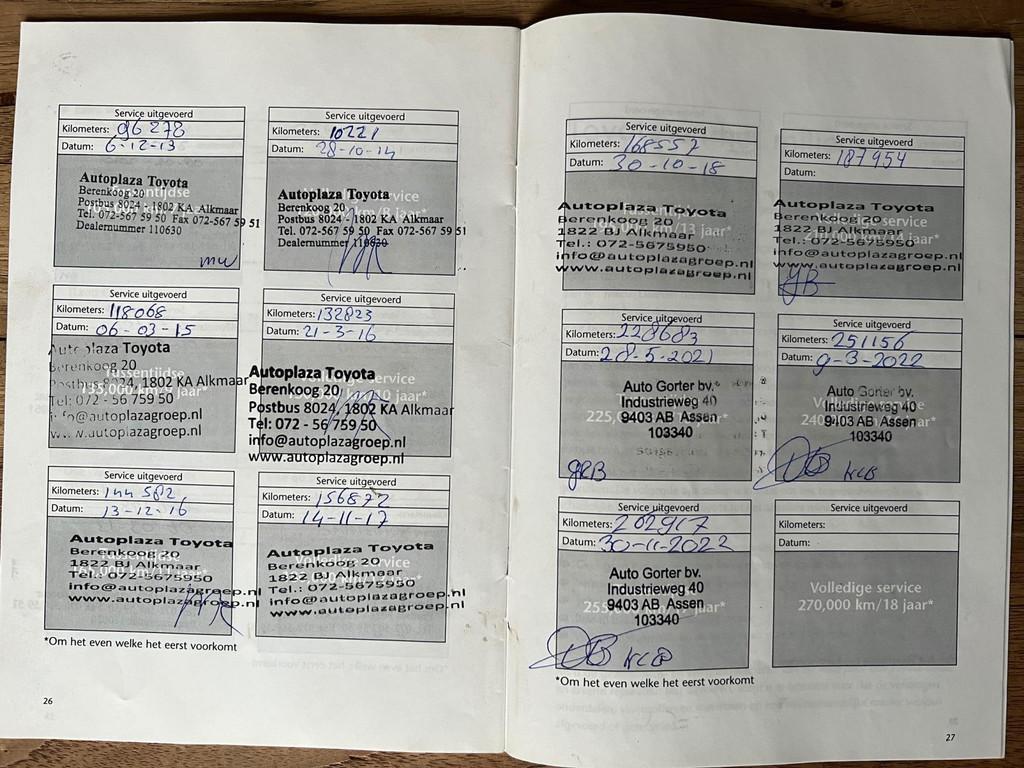 Service uitgevoerd
Kilometers: 96 278
Datum: 6-12-13
Autoplaza Toyota
Berenkoog 20
Postbus 8024 - 1802 KA Alkmaar
Tel. 072-567 59 50 Fax 072-567 59 51
Dealernummer 110630
Service uitgevoerd
Kilometers: 10221
Datum: 28-10-14
Autoplaza Toyota
Berenkoog 20
Postbus 8024 - 1802 KA Alkmaar
Tel. 072-567 59 50 Fax 072-567 59 51
Dealernummer 110630
Service uitgevoerd
Kilometers: 118068
Datum: 06-03-15
Autoplaza Toyota
Berenkoog 20
Postbus 8024, 1802 KA Alkmaar
Tel: 072 - 56 759 50
info@autoplazagroep.nl
www.autoplazagroep.nl
Service uitgevoerd
Kilometers: 132823
Datum: 21-3-16
Autoplaza Toyota
Berenkoog 20
Postbus 8024, 1802 KA Alkmaar
Tel: 072 - 56 759 50
info@autoplazagroep.nl
www.autoplazagroep.nl
Service uitgevoerd
Kilometers: 144 582
Datum: 13-12-16
Autoplaza Toyota
Berenkoog 20
1822 BJ Alkmaar
Tel.: 072-5675950
info@autoplazagroep.nl
www.autoplazagroep.nl
Service uitgevoerd
Kilometers: 156872
Datum: 14-11-17
Autoplaza Toyota
Berenkoog 20
1822 BJ Alkmaar
Tel.: 072-5675950
info@autoplazagroep.nl
www.autoplazagroep.nl
*Om het even welke het eerst voorkomt
26
Service uitgevoerd
Kilometers: 168552
Datum: 30-10-18
Autoplaza Toyota
Berenkoog 20
1822 BJ Alkmaar
Tel.: 072-5675950
info@autoplazagroep.nl
www.autoplazagroep.nl
Service uitgevoerd
Kilometers: 187954
Datum:
Autoplaza Toyota
Berenkoog 20
1822 BJ Alkmaar
Tel.: 072-5675950
info@autoplazagroep.nl
www.autoplazagroep.nl
Service uitgevoerd
Kilometers: 228683
Datum: 28-5-2021
Auto Gorter bv.
Industrieweg 40
9403 AB Assen
103340
Service uitgevoerd
Kilometers: 251156
Datum: 9-3-2022
Auto Gorter bv.
Industrieweg 40
9403 AB Assen
103340
Service uitgevoerd
Kilometers: 202917
Datum: 30-11-2022
Auto Gorter bv.
Industrieweg 40
9403 AB Assen
103340
Service uitgevoerd
Kilometers:
Datum:
Volledige service
270,000 km/18 jaar*
*Om het even welke het eerst voorkomt
27